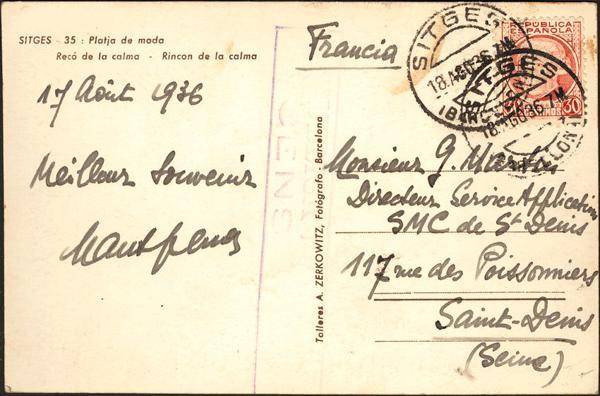 SITGES - 35 : Platja de moda
Recó de la calma - Rincon de la calma
17 Août 1936
Meilleur Souvenir
CENS
Talleres A. ZERKOWITZ, Fotógrafo - Barcelona
Francia
REPUBLICA
ESPAÑOLA
30
CENTIMOS
SITGES
18.AGO36.7M
SITGES
18.AGO36.7M
(BARCELONA)
Monsieur G.
Directeur Service Application
SMC de St Denis
117 rue des Poissonniers
Saint-Denis
(Seine)